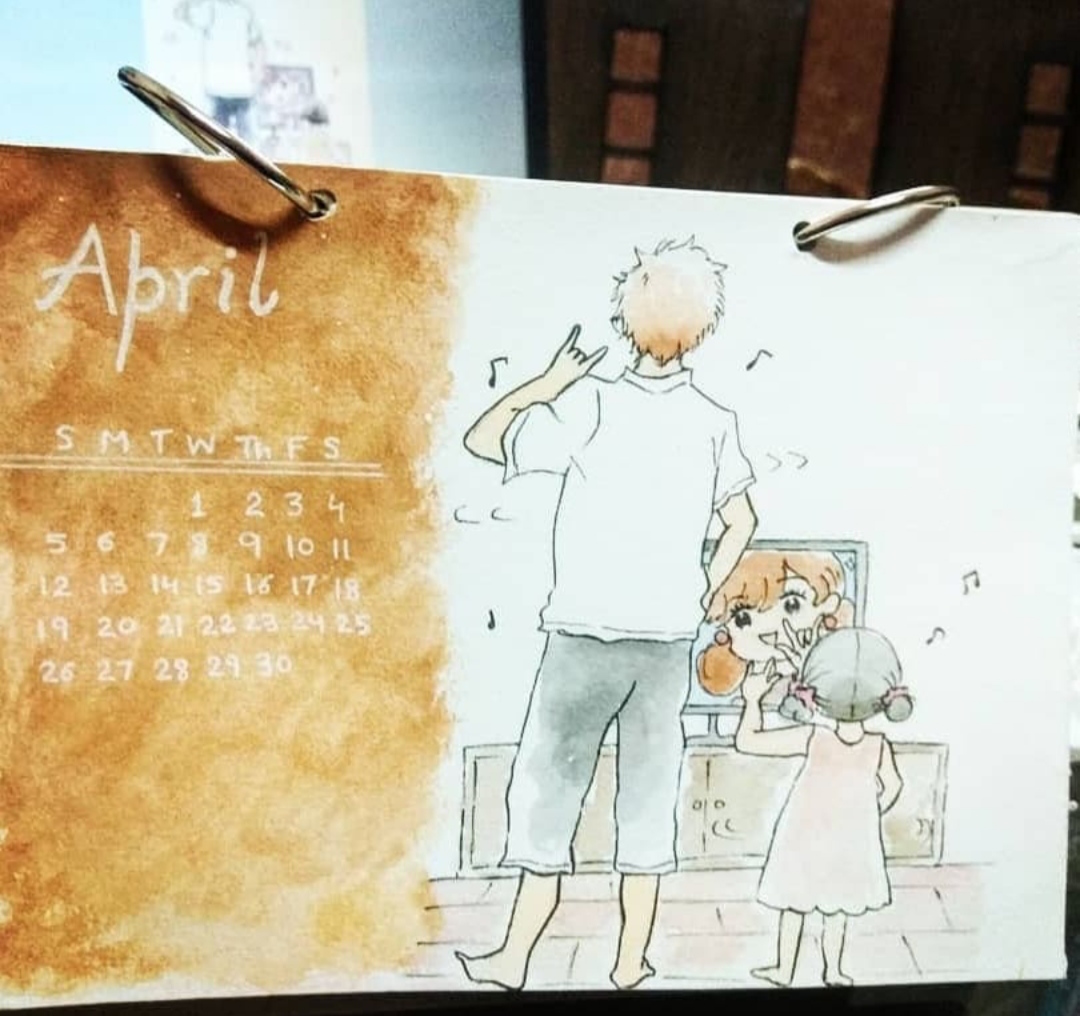 April
S M T W Th F S
1 2 3 4
5 6 7 8 9 10 11
12 13 14 15 16 17 18
19 20 21 22 23 24 25
26 27 28 29 30